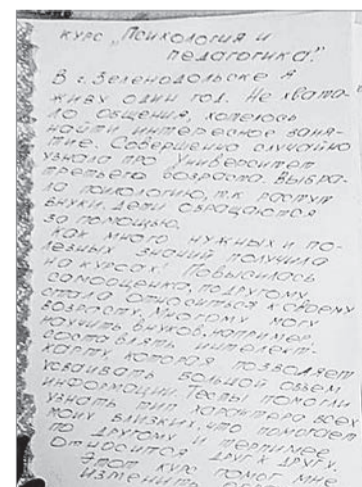 курс „Психология и
педагогика".
В г. Зеленодольске я
живу один год. Не хвата-
ло общения, хотелось
найти интересное заня-
тие. Совершенно случайно
узнала про Университет
третьего возраста. Выбра-
ла психологию, т.к растут
внуки, дети обращаются
за помощью.
Как много нужных и по-
лезных знаний получила
на курсах! Повысилась
самооценка, по другому
стала относиться к своему
возрасту. Многому могу
научить внуков, например,
составлять интелект-
карту, которая позволяет
усваивать большой объем
информации. Тесты помогли
узнать тип характера всех
моих близких, что помогает
по другому и терпимее
относится друг к другу.
Этот курс помог мне
изменить